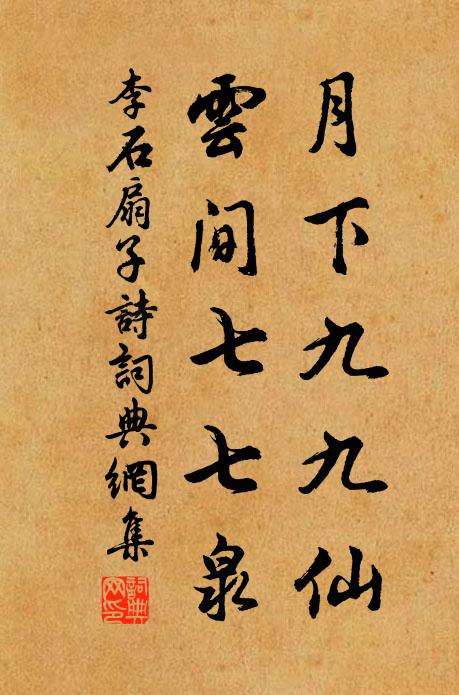 月下九九仙
雲間七七泉
李石扇子詩詞典網集
詞典网印